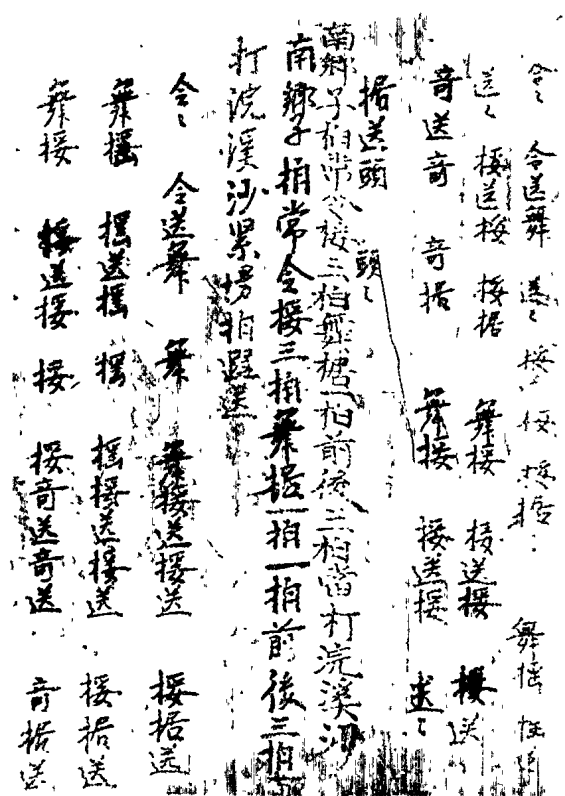 令々 令送舞 送々 挼据 舞摇
送々 挼送挼 挼据 舞挼 挼送挼 挼送
奇送奇 奇据 舞挼 挼送挼 送々
据送頭 頭々
南鄉子拍常令挼三拍舞据一拍前後三拍當打浣溪沙
南鄉子拍常令挼三拍舞据一拍一拍前後三拍
打浣溪沙緊慢拍段送
令々 令送舞 舞 舞挼送挼送 挼据送
舞摇 摇送摇 摇 摇挼送挼送 挼据送
舞挼 挼送挼 挼 挼奇送奇送 奇据送